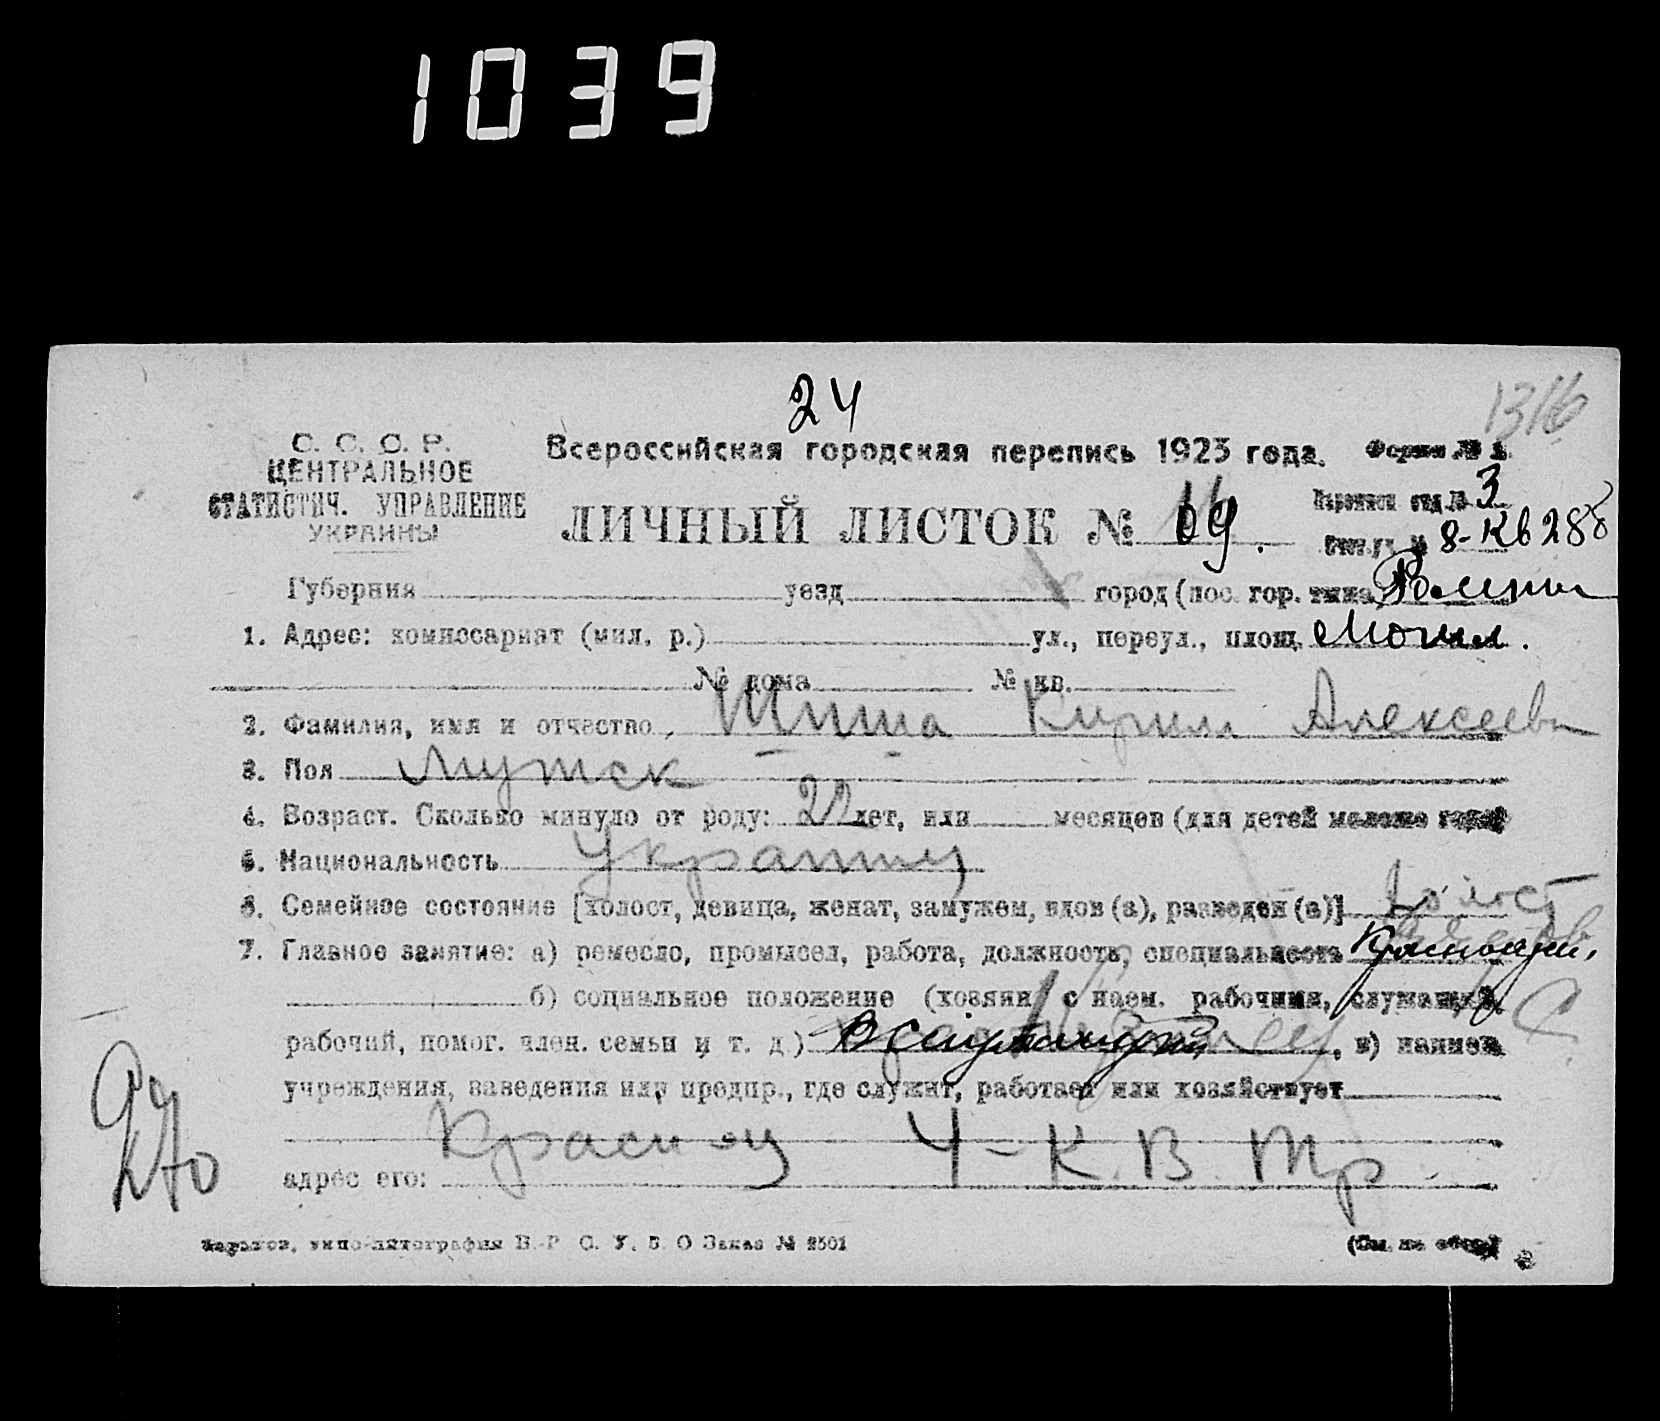 1039
24
1316
С. С. С. Р.
ЦЕНТРАЛЬНОЕ
СТАТИСТИЧ. УПРАВЛЕНИЕ
УКРАИНЫ
Всероссийская городская перепись 1923 года.
Форма № 1.
ЛИЧНЫЙ ЛИСТОК № 09.
3
8-Кв 288
Губерния уезд город (пос. гор. типа
1. Адрес: комиссариат (мил. р.) ул., переул., площ. Могил.
№ дома № кв.
2. Фамилия, имя и отчество, Шпиша Кирилл Алексеевич
3. Пол Мужск
4. Возраст. Сколько минуло от роду: 22 лет, или месяцев (для детей моложе года)
5. Национальность Украинец
6. Семейное состояние [холост, девица, женат, замужем, вдов (а), разведен (а)] холост
7. Главное занятие: а) ремесло, промысел, работа, должность, специальность
б) социальное положение (хозяин с наем. рабочими, служащий,
рабочий, помог. член. семьи и т. д.) , в) наимен.
учреждения, заведения или предпр., где служит, работает или хозяйствует
адрес его: 4-К. В. Тр.
270
Харьков, типо-литография В.-Р. С. У. В. О Заказ № 2501
(См. на обор.)